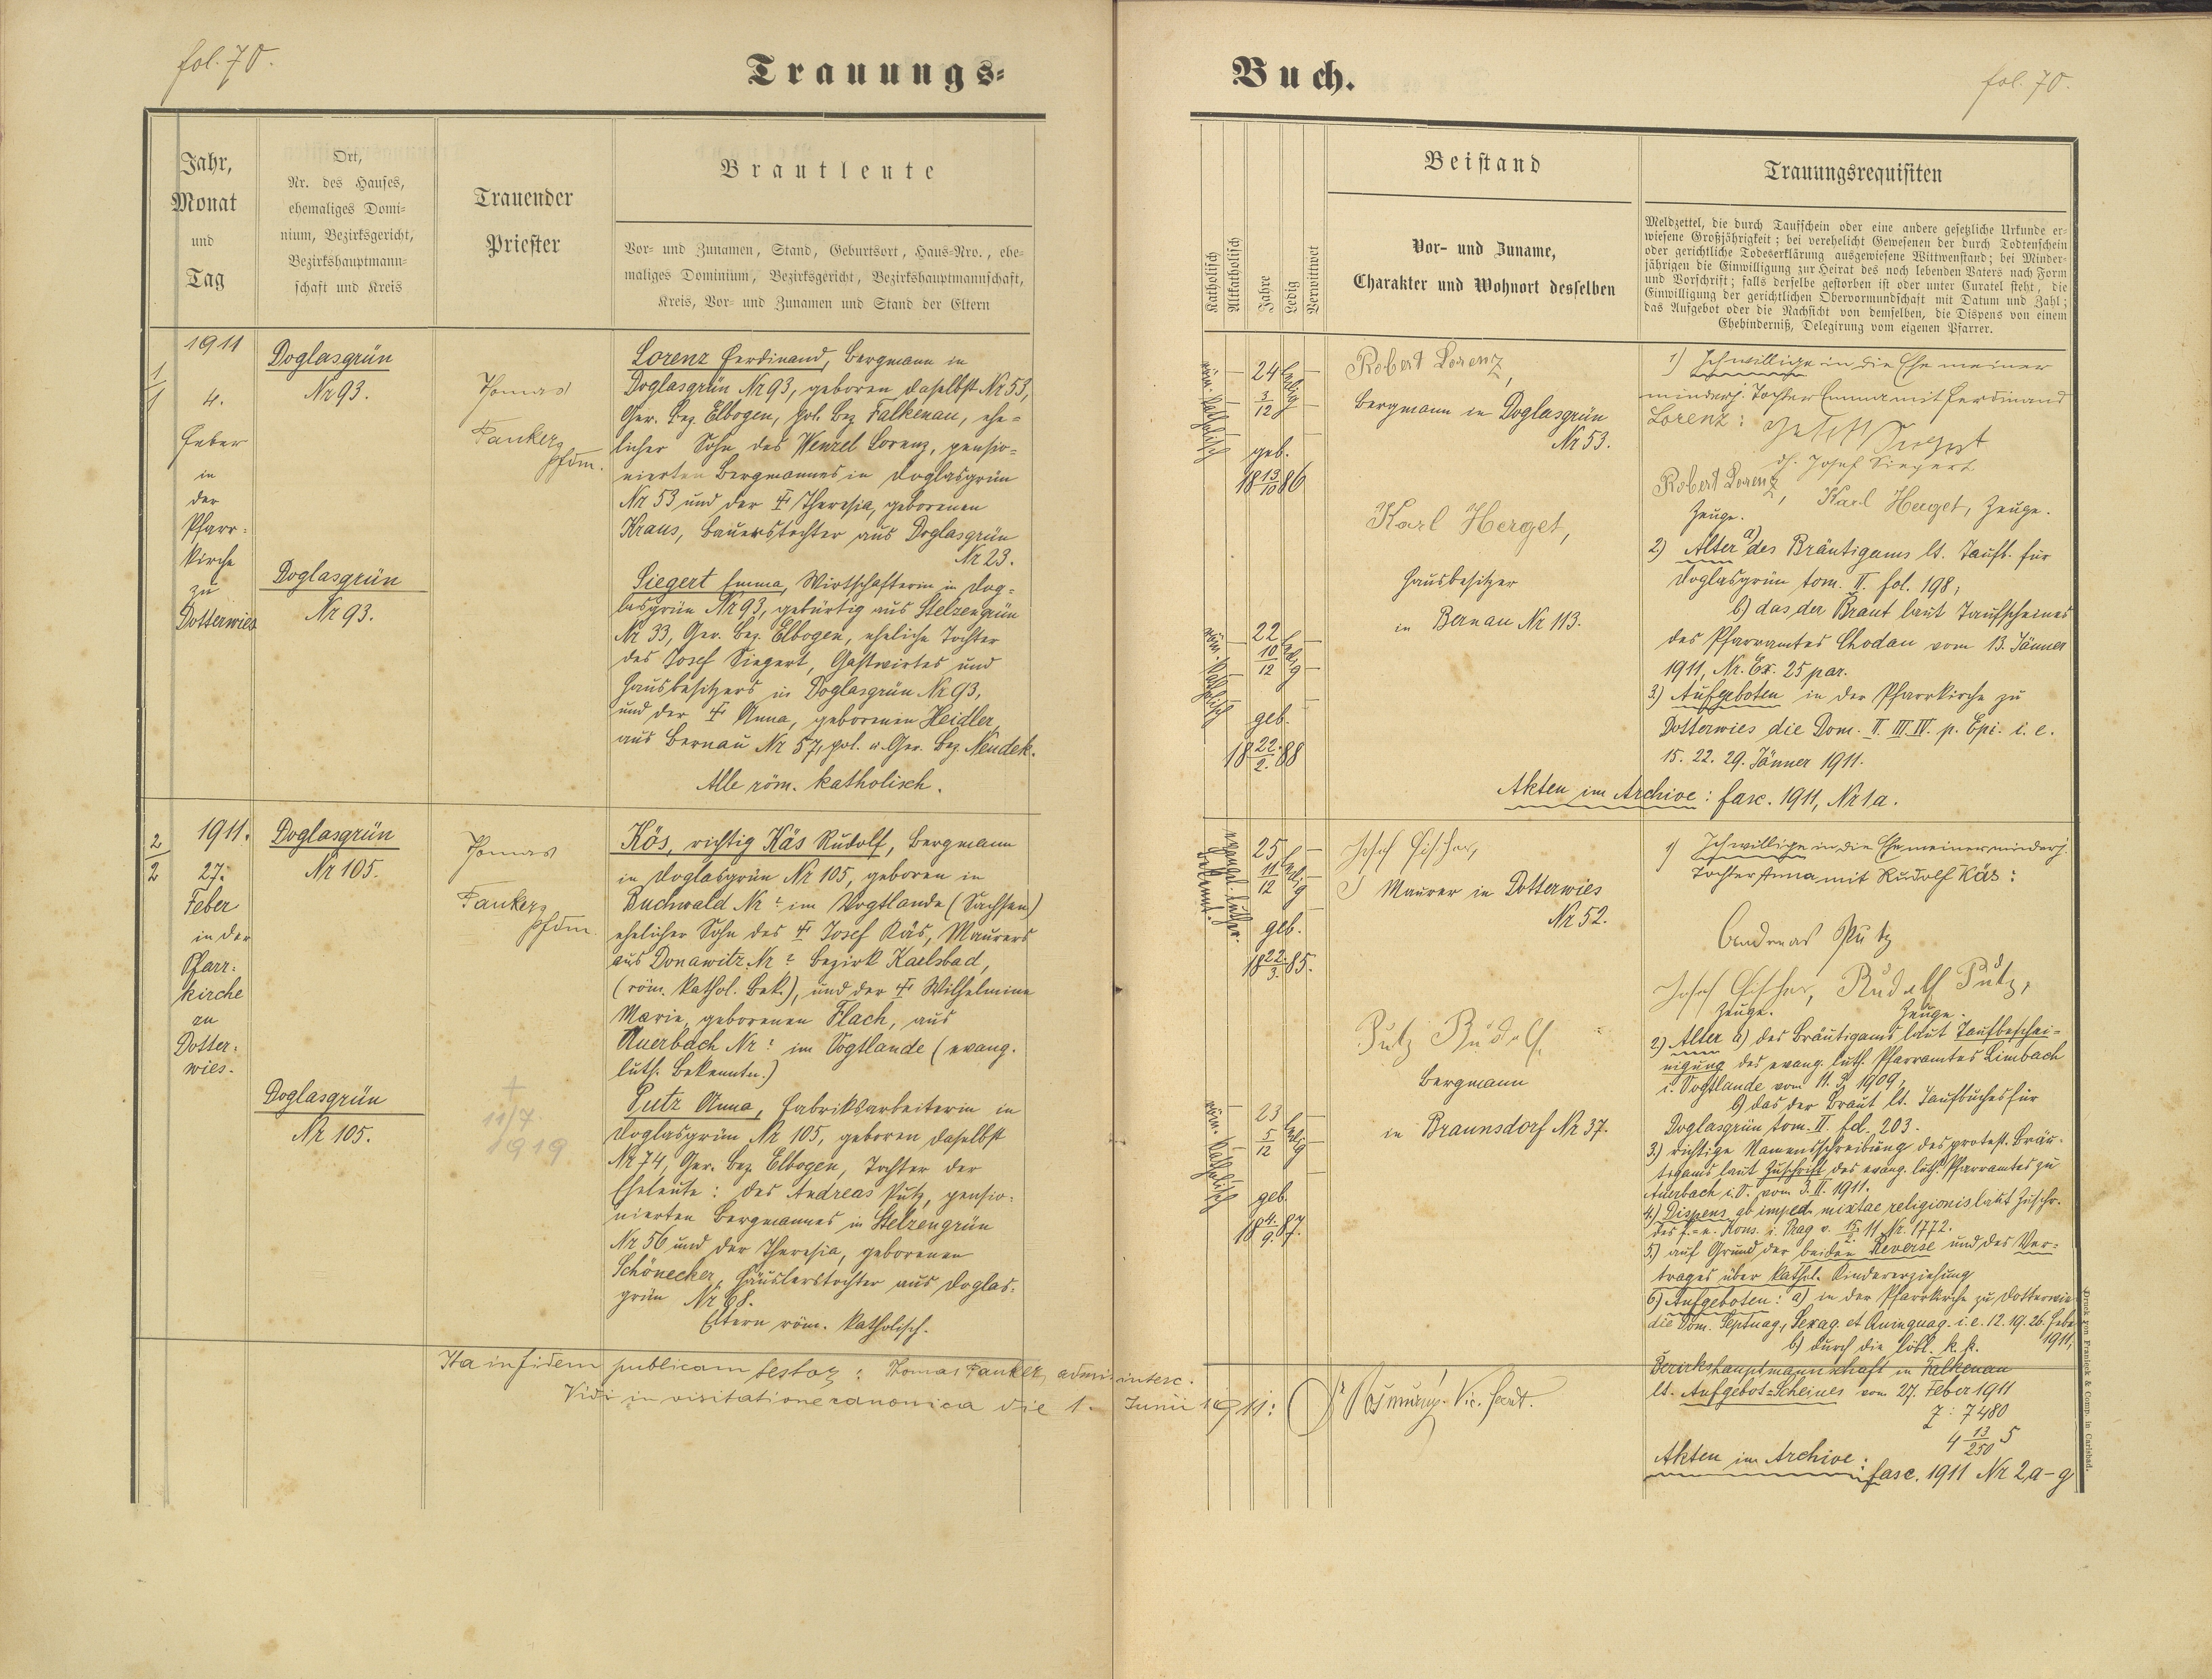 fol. 70.
Trauungs-
Jahr,
Monat
und
Tag
Ort,
Nr. des Hauses,
ehemaliges Domi-
nium, Bezirksgericht,
Bezirkshauptmann-
schaft und Kreis
Trauender
Priester
Brautleute
Vor- und Zunamen, Stand, Geburtsort, Haus-Nro., ehe-
maliges Dominium, Bezirksgericht, Bezirkshauptmannschaft,
Kreis, Vor- und Zunamen und Stand der Eltern
1
1
1911
4.
Feber
in
der
Pfarr-
kirche
zu
Dotterwies
Doglasgrün
Nr 93.
Doglasgrün
Nr 93.
Thomas
Panker,
Pfdm.
Lorenz Ferdinand, Bergmann in
Doglasgrün Nr 93, geboren daselbst Nr 53,
Ger. Bez. Elbogen, pol. Bez. Falkenau, ehe-
licher Sohn des Wenzel Lorenz, pensio-
nierten Bergmannes in Doglasgrün
Nr 53 und der † Theresia, geborenen
Kraus, Bauerstochter aus Doglasgrün
Nr 23.
Siegert Emma, Wirtschafterin in Dog-
lasgrün Nr 93, gebürtig aus Stelzengrün
Nr 33, Ger. Bez. Elbogen, eheliche Tochter
des Josef Siegert, Gastwirtes und
Hausbesitzers in Doglasgrün Nr 93,
und der † Anna, geborenen Heidler,
aus Bernau Nr 57, pol. u. Ger. Bez. Neudek.
Alle röm. katholisch.
2
2
1911.
27.
Feber
in der
Pfarr-
kirche
zu
Dotter-
wies.
Doglasgrün
Nr 105.
Doglasgrün
Nr 105.
Thomas
Panker,
Pfdm.
†
11/7
1919
Kös, richtig Käs Rudolf, Bergmann
in Doglasgrün Nr 105, geboren in
Buchwald Nr ? im Vogtlande (Sachsen)
ehelicher Sohn des † Josef Käs, Maurers
aus Donawitz Nr ? Bezirk Karlsbad,
(röm. kathol. Bek.), und der † Wilhelmine
Marie, geborenen Flach, aus
Auerbach Nr ? im Vogtlande (evang.
luth. Bekenntn.)
Putz Anna, Fabriksarbeiterin in
Doglasgrün Nr 105, geboren daselbst
Nr 74, Ger. Bez. Elbogen, Tochter der
Eheleute: des Andreas Putz, pensio-
nierten Bergmannes in Stelzengrün
Nr 56 und der Theresia, geborenen
Schönecker, Häuslerstochter aus Doglas-
grün Nr 68.
Eltern röm. katholisch.
Ita in fidem publicam testor: Thomas Panker, admi. interc.
Vidi in visitatione canonica die 1. Junii 1911:
Vic. Secret.
Buch.
fol. 70.
Katholisch
Altkatholisch
Jahre
Ledig
Verwittwet
Beistand
Vor- und Zuname,
Charakter und Wohnort desselben
Trauungsrequisiten
Meldzettel, die durch Taufschein oder eine andere gesetzliche Urkunde er-
wiesene Großjährigkeit; bei verehelicht Gewesenen der durch Todtenschein
oder gerichtliche Todeserklärung ausgewiesene Wittwenstand; bei Minder-
jährigen die Einwilligung zur Heirat des noch lebenden Vaters nach Form
und Vorschrift; falls derselbe gestorben ist oder unter Curatel steht, die
Einwilligung der gerichtlichen Obervormundschaft mit Datum und Zahl;
das Aufgebot oder die Nachsicht von demselben, die Dispens von einem
Ehehinderniß, Delegirung vom eigenen Pfarrer.
röm. katholisch
24
3
12
ledig
geb.
18 13 86
10
röm. katholisch
22
10
12
ledig
geb.
18 22. 88
2.
Robert Lorenz,
Bergmann in Doglasgrün
Nr 53.
Karl Herget,
Hausbesitzer
in Bernau Nr 113.
1) Ich willige in die Ehe meiner
minderj. Tochter Emma mit Ferdinand
Lorenz: Josef Siegert
d. Josef Siegert
Robert Lorenz, Karl Herget, Zeuge.
Zeuge.
2) Alter a) des Bräutigams lt. Taufb. für
Doglasgrün tom. II. fol. 198;
b) das der Braut laut Taufscheines
des Pfarramtes Chodau vom 13. Jänner
1911, Nr. Ex. 25 par.
3.) Aufgeboten in der Pfarrkirche zu
Dotterwies die Dom. II. III. IV. p. Epi. i. e.
15. 22. 29. Jänner 1911.
Akten im Archive: fasc. 1911, Nr 1a.
evangel. luther.
Bekennt.
25
11
12
ledig
geb.
18 22. 85.
3.
röm. katholisch
23
5
12
ledig
geb.
18 4. 87.
9.
Josef Fischer,
Maurer in Dotterwies
Nr 52.
Putz Rudolf,
Bergmann
in Braunsdorf Nr 37.
1) Ich willige in die Ehe meiner minderj.
Tochter Anna mit Rudolf Käs:
Andreas Putz
Josef Fischer, Rudolf Putz,
Zeuge. Zeuge.
2) Alter a) des Bräutigams laut Taufbeschei-
nigung des evang. luth. Pfarramtes Limbach
i. Vogtlande vom 11. 9. 1909,
b) das der Braut lt. Taufbuches für
Doglasgrün tom. II. fol. 203.
3.) richtige Namensschreibung des protest. Bräu-
tigams laut Zuschrift des evang. luth. Pfarramtes zu
Auerbach i. V. vom 3. II. 1911.
4.) Dispens ab imped. mixtae religionis laut Zuschr.
des f.-e. Kons. i. Prag v. 15. 11 Nr. 1772.
2.
5.) auf Grund der beiden Reverse und des Ver-
trages über kathol. Kindererziehung
6) Aufgeboten: a) in der Pfarrkirche zu Dotterwies
die Dom. Septuag., Sexag. et Quinquag. i. e. 12. 19. 26. Feber
1911,
b) durch die löbl. k. k.
Bezirkshauptmannschaft in Falkenau
lt. Aufgebot-Scheines vom 27. Feber 1911
Z: 7480
4 13 5
250
Akten im Archive: fasc. 1911 Nr 2, a-g
Druck von Franieck & Comp. in Carlsbad.